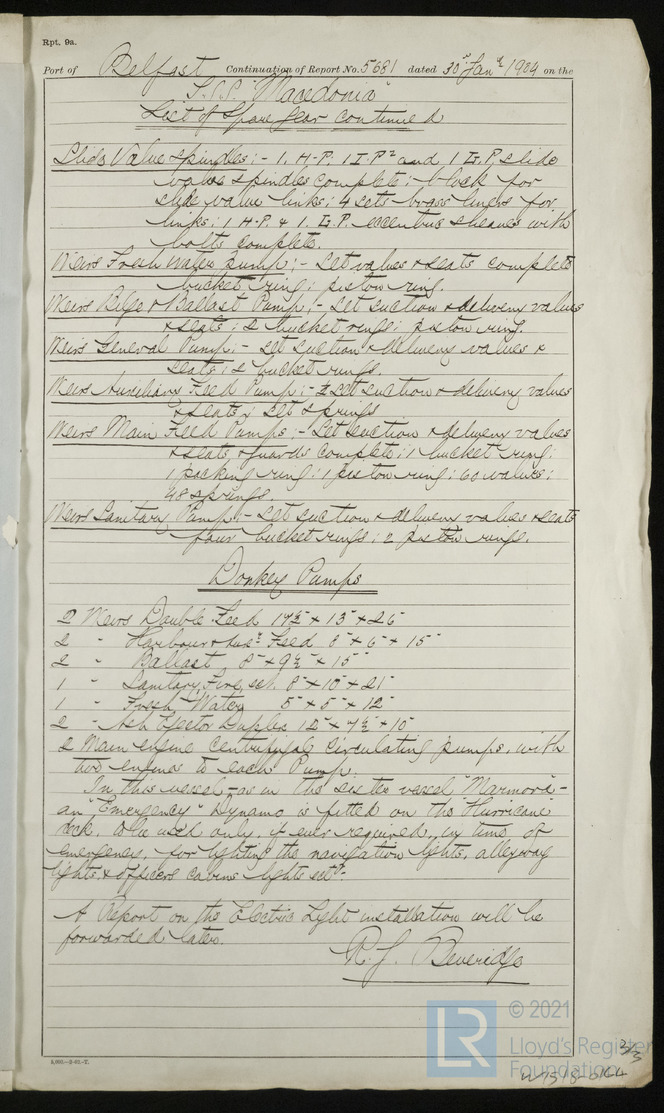 Rpt. 9a.
Port of Belfast Continuation of Report No. 5681 dated 30th Jany 1904 on the
S.S. "Macedonia"
List of Spare Gear continued
Slide Valve Spindles:- 1. H-P. 1 I-P. and 1 L.P. slide
valve spindles complete; 1 block for
slide valve links; 4 sets brass liners for
links; 1 H-P. & 1. L.P. eccentric sheaves with
bolts complete.
Weirs Fresh Water Pump;- Set valves & seats complete
bucket ring; piston ring.
Weirs Bilge & Ballast Pump;- Set suction & delivery valves
& seats; 2 bucket rings; piston ring.
Weirs General Pump:- Set suction & delivery valves &
seats; 2 bucket rings.
Weirs Auxiliary Feed Pump;- ½ Set suction & delivery valves
& seats; set springs
Weirs Main Feed Pumps;- Set suction & delivery valves
& seats & guards complete; 1 bucket ring;
1 packing ring; 1 piston ring; 60 valves;
48 springs.
Weirs Sanitary Pump:- Set suction & delivery valves & seats
four bucket rings; 2 piston rings.
Donkey Pumps
2 Weirs Double Feed 17½" + 13" + 26"
2 " Harbour & Auxy Feed 8" + 6" + 15"
2 " Ballast 8" + 9½" + 15"
1 " Sanitary, Fire, &c. 8" + 10" + 21"
1 " Fresh Water 5" + 5" + 12"
2 " Ash Ejector Duplex 12" + 7½" + 10"
2 Main engine Centrifugal Circulating pumps, with
two engines to each Pump.
In this vessel - as in the sister vessel "Marmora" -
an "Emergency" Dynamo is fitted on the Hurricane
deck, to be used only, if ever required, in time of
emergency, for lighting the navigation lights, alleyway
lights, & officers cabins lights &c:-
A Report on the Electric Light installation will be
forwarded later.
R. J. Beveridge
5,000.-2-02.-T.
LR
© 2021
Lloyd's Register
Foundation